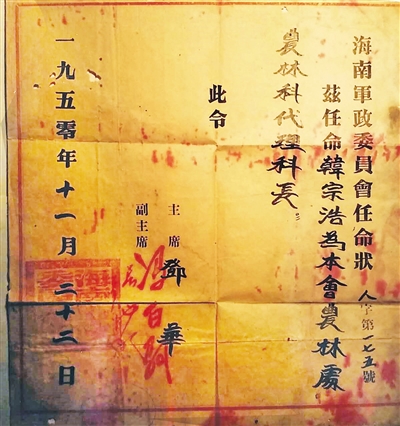 海南軍政委員會任命狀
人字第一七五號
茲任命韓宗浩為本會農林處
農林科代理科長
此令
主席 鄧華
副主席 馮白駒
一九五零年十一月二十二日